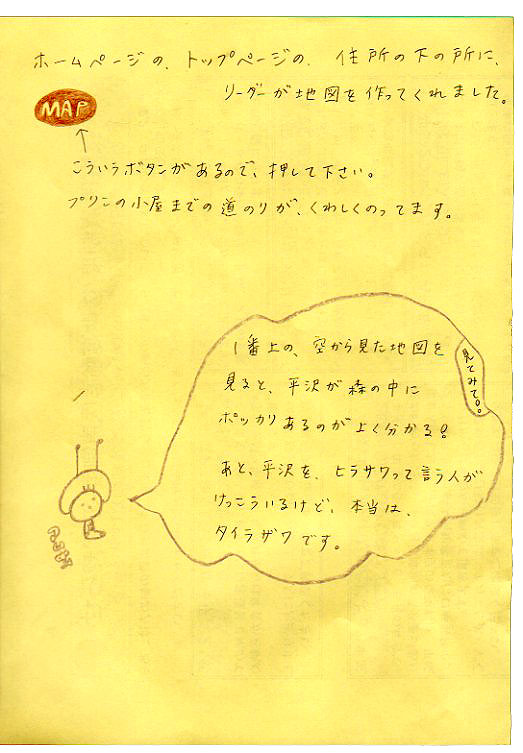 ホームページの、トップページの、住所の下の所に、
リーダーが地図を作ってくれました。
MAP
こういうボタンがあるので、押して下さい。
プリンの小屋までの道のりが、くわしくのってます。
1番上の、空から見た地図を
見ると、平沢が森の中に
ポッカリあるのがよく分かる!
見てみて!。
あと、平沢を、ヒラサワって言う人が
けっこういるけど、本当は、
タイラザワです。